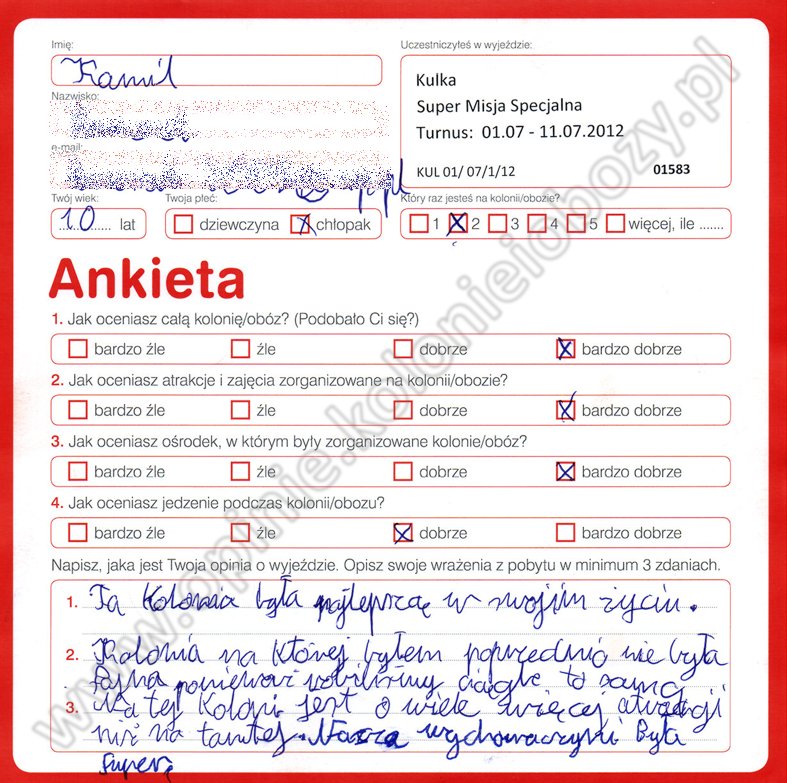 Imię:
Kamil
Nazwisko:
e-mail:
Uczestniczyłeś w wyjeździe:
Kulka
Super Misja Specjalna
Turnus: 01.07 - 11.07.2012
KUL 01/ 07/1/12 01583
Twój wiek:
10 lat
Twoja płeć:
dziewczyna chłopak
Który raz jesteś na kolonii/obozie?
1 2 3 4 5 więcej, ile .......
Ankieta
1. Jak oceniasz całą kolonię/obóz? (Podobało Ci się?)
bardzo źle źle dobrze bardzo dobrze
2. Jak oceniasz atrakcje i zajęcia zorganizowane na kolonii/obozie?
bardzo źle źle dobrze bardzo dobrze
3. Jak oceniasz ośrodek, w którym były zorganizowane kolonie/obóz?
bardzo źle źle dobrze bardzo dobrze
4. Jak oceniasz jedzenie podczas kolonii/obozu?
bardzo źle źle dobrze bardzo dobrze
Napisz, jaka jest Twoja opinia o wyjeździe. Opisz swoje wrażenia z pobytu w minimum 3 zdaniach.
1. Ta Kolonia była najlepszą w mojim życiu.
2. Kolonia na której byłem poprzednio nie była
fajna ponieważ robiliśmy ciągle to samo
3. Na tej Koloni jest o wiele więcej atrakcji
niż na tamtej. Nasza wychowaczyni była
super
www.opinie.kolonieiobozy.pl